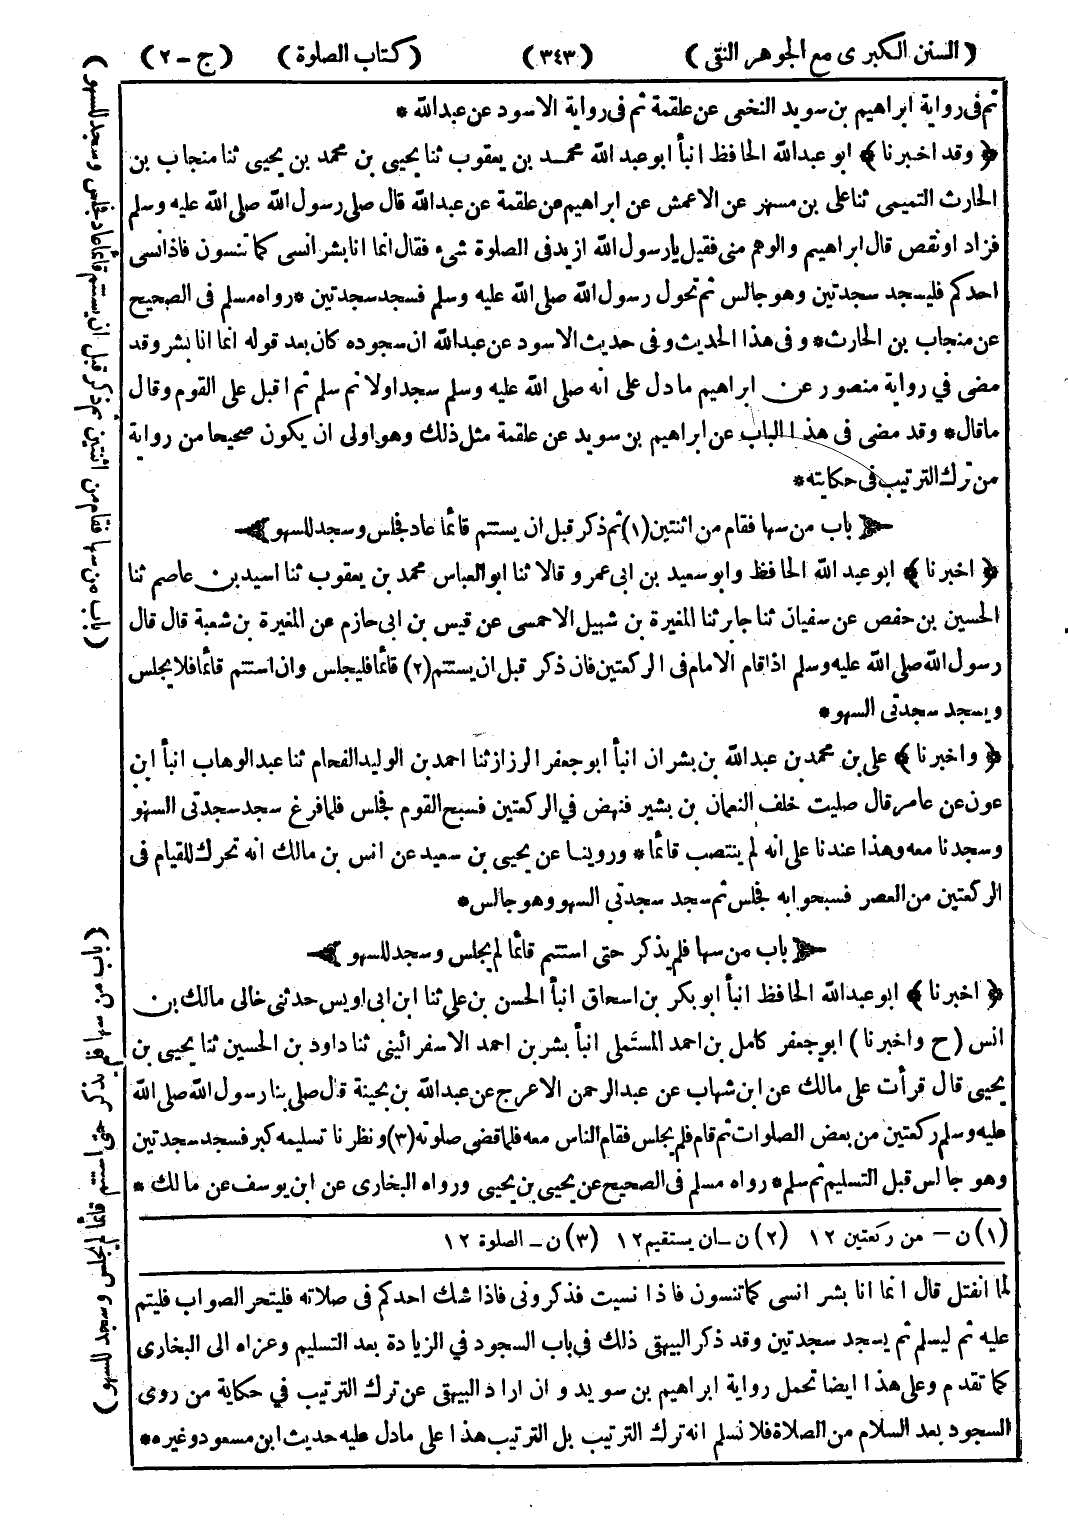 (السنن الكبرى مع الجوهر النقى) (٣٤٣) (كتاب الصلوة) (ج-٢)
ثم فى رواية ابراهيم بن سويد النخعى عن علقمة ثم فى رواية الاسود عن عبدالله *
﴿وقد اخبرنا﴾ ابو عبدالله الحافظ انبأ ابو عبد الله محمد بن يعقوب ثنا يحيى بن محمد بن يحيى ثنا منجاب بن
الحارث التميمى ثنا على بن مسهر عن الاعمش عن ابراهيم عن علقمة عن عبدالله قال صلى رسول الله صلى الله عليه وسلم
فزاد او نقص قال ابراهيم والوهم منى فقيل يارسول الله ازيد فى الصلوة شىء فقال انما انا بشر انسى كما تنسون فاذا نسى
احدكم فليسجد سجدتين وهو جالس ثم تحول رسول الله صلى الله عليه وسلم فسجد سجدتين *رواه مسلم فى الصحيح
عن منجاب بن الحارث* وفى هذا الحديث وفى حديث الاسود عن عبدالله ان سجوده كان بعد قوله انما انا بشر وقد
مضى في رواية منصور عن ابراهيم ما دل على انه صلى الله عليه وسلم سجد اولا ثم سلم ثم اقبل على القوم وقال
ما قال* وقد مضى فى هذا الباب عن ابراهيم بن سويد عن علقمة مثل ذلك وهو اولى ان يكون صحيحا من رواية
من ترك الترتيب فى حكايته*
﴿باب من سها فقام من اثنتين (١) ثم ذكر قبل ان يستتم قائما عاد فجلس وسجد للسهو﴾
﴿اخبرنا﴾ ابو عبد الله الحافظ وابو سعيد بن ابى عمرو قالا ثنا ابو العباس محمد بن يعقوب ثنا اسيد بن عاصم ثنا
الحسين بن حفص عن سفيان ثنا جابر ثنا المغيرة بن شبيل الاحمسى عن قيس بن ابى حازم عن المغيرة بن شعبة قال قال
رسول الله صلى الله عليه وسلم اذا قام الامام فى الركعتين فان ذكر قبل ان يستتم (٢) قائما فليجلس وان استتم قائما فلا يجلس
ويسجد سجدتى السهو*
﴿واخبرنا﴾ على بن محمد بن عبدالله بن بشران انبأ ابو جعفر الرزاز ثنا احمد بن الوليد الفحام ثنا عبدالوهاب انبأ ابن
عون عن عامر قال صليت خلف النعمان بن بشير فنهض في الركعتين فسبح القوم فجلس فلما فرغ سجد سجدتى السهو
وسجدنا معه وهذا عندنا على انه لم ينتصب قائما* وروينا عن يحيى بن سعيد عن انس بن مالك انه تحرك للقيام فى
الركعتين من العصر فسبحوا به فجلس ثم سجد سجدتى السهو وهو جالس*
﴿باب من سها فلم يذكر حتى استتم قائما لم يجلس وسجد للسهو﴾
﴿اخبرنا﴾ ابو عبدالله الحافظ انبأ ابو بكر بن اسحاق انبأ الحسن بن على ثنا ابن ابى اويس حدثنى خالى مالك بن
انس (ح واخبرنا) ابو جعفر كامل بن احمد المستملى انبأ بشر بن احمد الاسفرائينى ثنا داود بن الحسين ثنا يحيى بن
يحيى قال قرأت على مالك عن ابن شهاب عن عبدالرحمن الاعرج عن عبدالله بن بحينة قال صلى بنا رسول الله صلى الله
عليه وسلم ركعتين من بعض الصلوات ثم قام فلم يجلس فقام الناس معه فلما قضى صلوته (٣) ونظرنا تسليمه كبر فسجد سجدتين
وهو جالس قبل التسليم ثم سلم* رواه مسلم فى الصحيح عن يحيى بن يحيى ورواه البخارى عن ابن يوسف عن مالك *
(١) ن – من ركعتين ١٢ (٢) ن – ان يستقيم ١٢ (٣) ن – الصلوة ١٢
لما انفتل قال انما انا بشر انسى كما تنسون فاذا نسيت فذكرونى فاذا شك احدكم فى صلاته فليتحر الصواب فليتم
عليه ثم ليسلم ثم يسجد سجدتين وقد ذكر البيهقى ذلك فى باب السجود في الزيادة بعد التسليم وعزاه الى البخارى
كما تقدم وعلى هذا ايضا تحمل رواية ابراهيم بن سويد وان اراد البيهقى عن ترك الترتيب في حكاية من روى
السجود بعد السلام من الصلاة فلا نسلم انه ترك الترتيب بل الترتيب هذا على مادل عليه حديث ابن مسعود وغيره*
(باب من سها فقام من اثنتين ثم ذكر قبل ان يستتم قائما عاد فجلس وسجد للسهو)
(باب من سها فلم يذكر حتى استتم قائما لم يجلس وسجد للسهو)